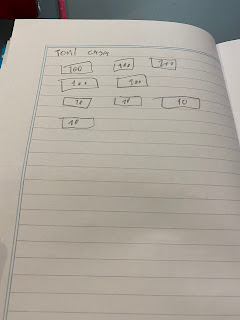 Toni casa
100 100 100
100 100
10 10 10
10